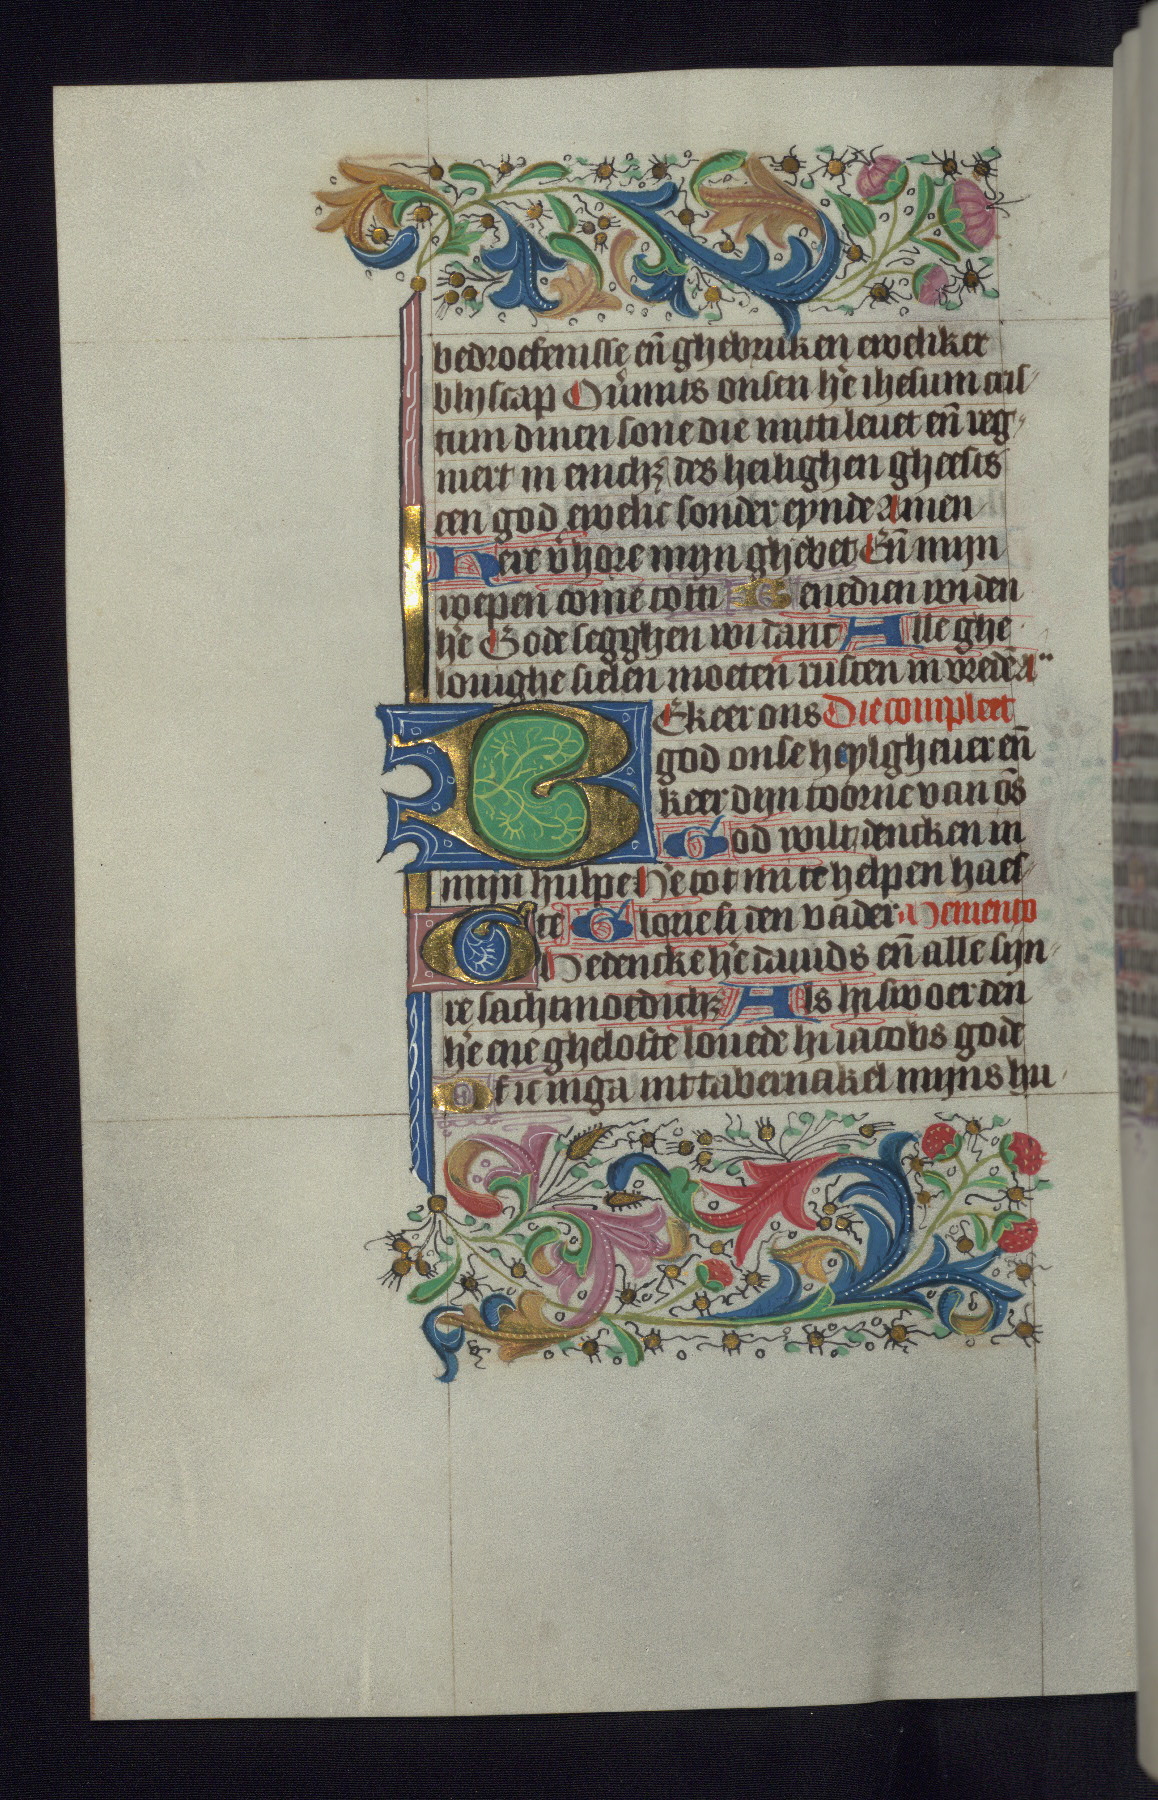 bedroefenisse eñ ghebruken eweliker
bliscap Ouͥmits onsen hẽ ihesum cris
tum dinen sone die mitti leuet eñ reg
niert in enichꝫ des heilighen gheests
een god ewelic sonder eynde Amen
Here v̉hore mijn ghebet Eñ mijn
roepen come tot ti Benedien wi den
hẽ Gode segghen wi danc Alle ghe
louighe sielen moeten rusten in vredẽ A
BEkeer ons Die compleet
god onse heylgheuer eñ
keer dijn toorne van õs
God wilt dencken in
mijn hulpe Hẽ tot mi te helpen haes
te Glorie si den vader Memento
GHedencke hẽ dauids eñ alle sijn
re sachtmoedichꝫ Als hi swoer den
hẽ ene ghelofte louede hi iacobs gode
Of ic inga int tabernakel mijns hu